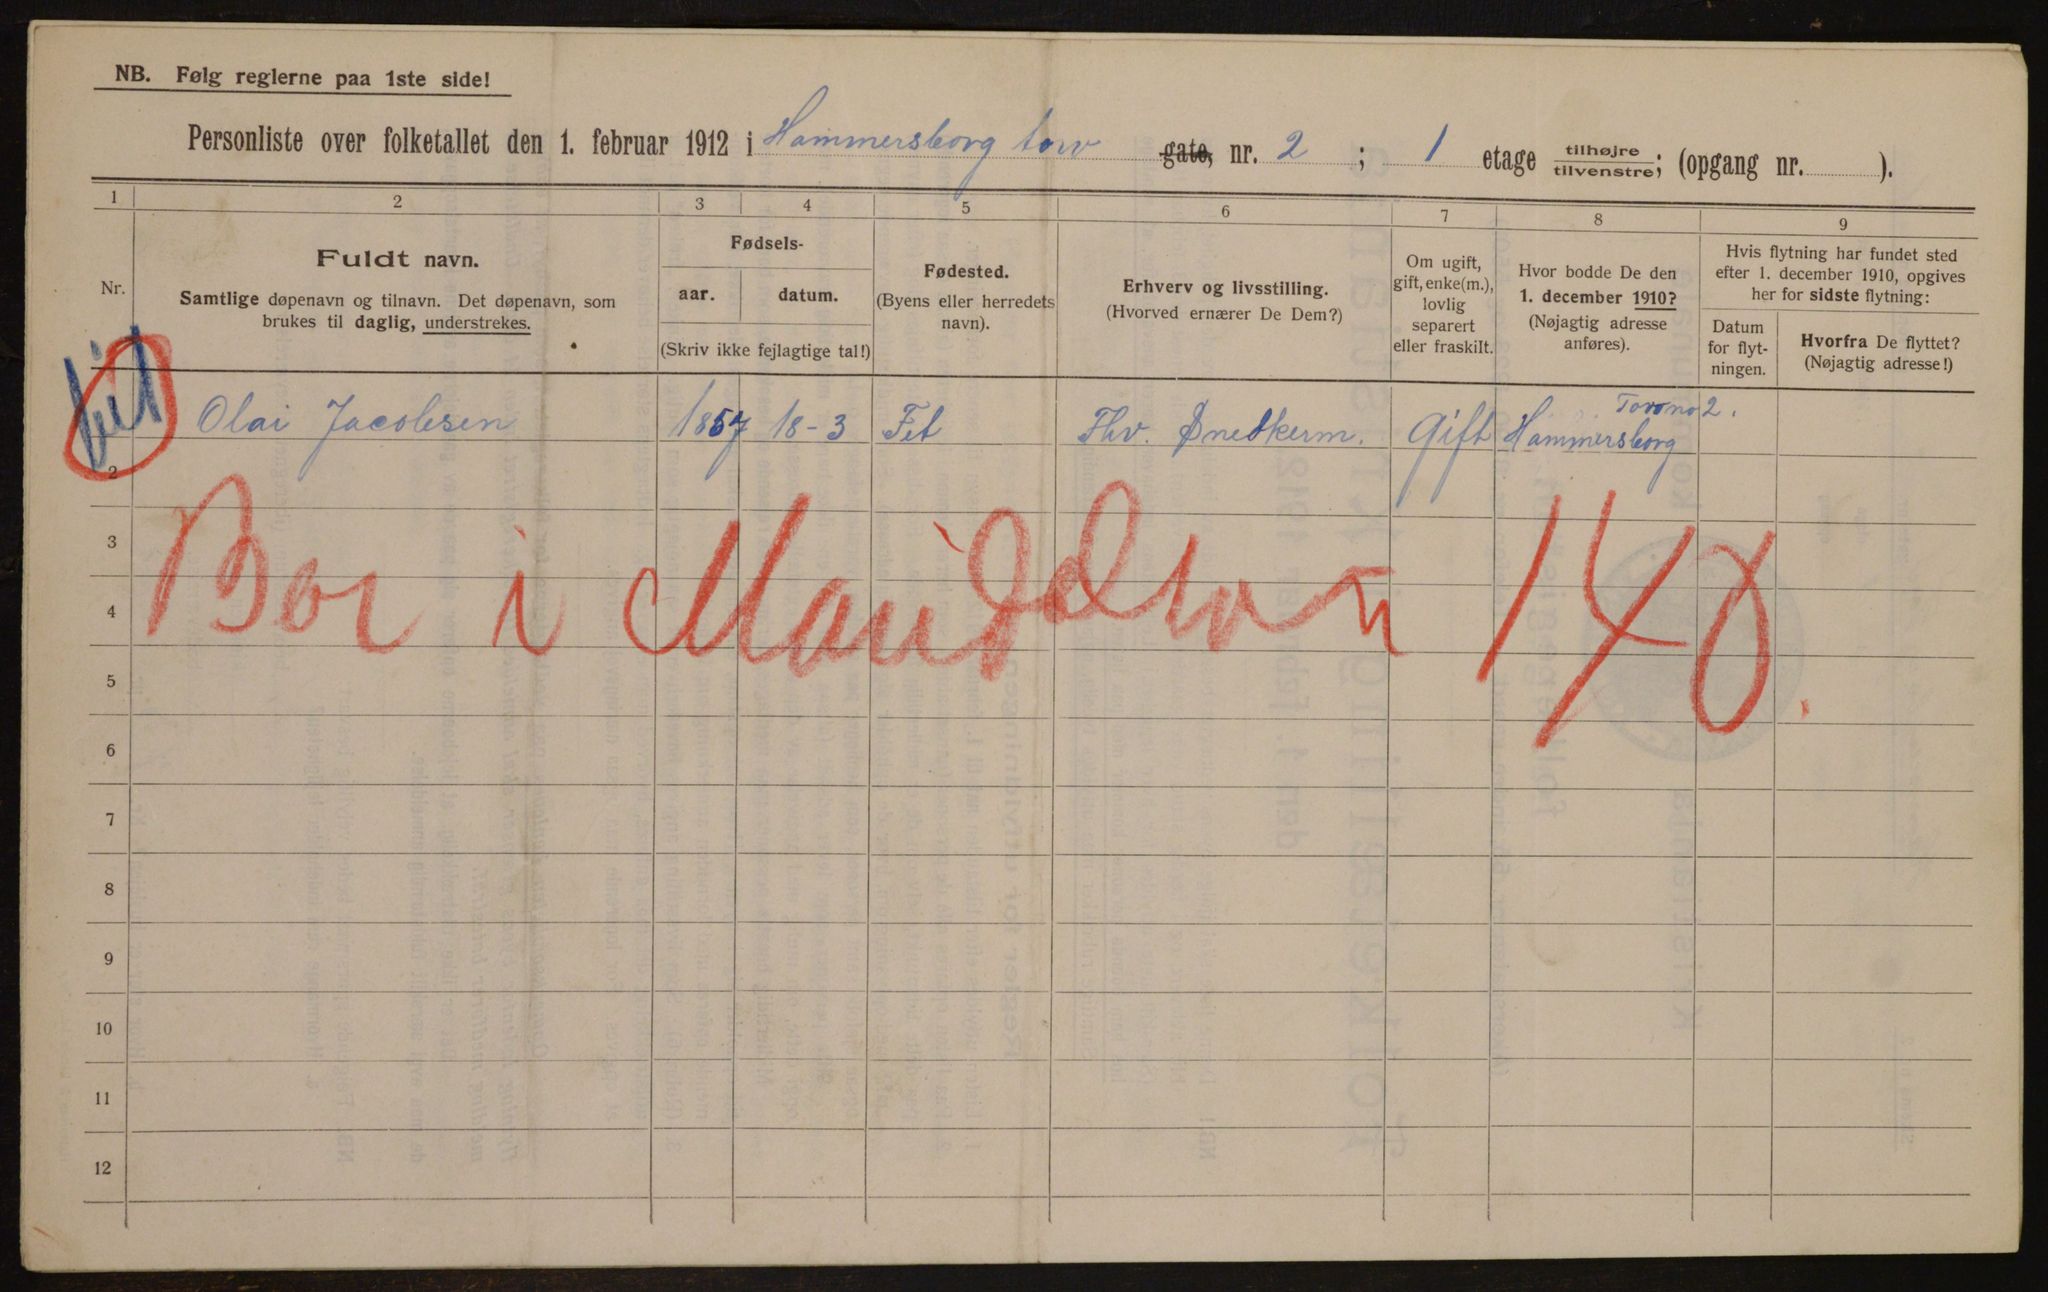 NB. Følg reglerne paa 1ste side!
Personliste over folketallet den 1. februar 1912 i Hammersborg torv gate, nr. 2 ; 1 etage tilhøjre tilvenstre; (opgang nr. ).
1 2 3 4 5 6 7 8 9
Nr.
Fuldt navn.
Samtlige døpenavn og tilnavn. Det døpenavn, som
brukes til daglig, understrekes.
Fødsels-
aar. datum.
(Skriv ikke fejlagtige tal!)
Fødested.
(Byens eller herredets
navn).
Erhverv og livsstilling.
(Hvorved ernærer De Dem?)
Om ugift,
gift, enke(m.),
lovlig
separert
eller fraskilt.
Hvor bodde De den
1. december 1910?
(Nøjagtig adresse
anføres).
Hvis flytning har fundet sted
efter 1. december 1910, opgives
her for sidste flytning:
Datum
for flyt-
ningen.
Hvorfra De flyttet?
(Nøjagtig adresse!)
Olai Jacobsen 1857 18-3 Fet Fhv. Snedkerm. Gift Hammersborg Torv no 2.
2
Bor i 140.
3
4
5
6
7
8
9
10
11
12